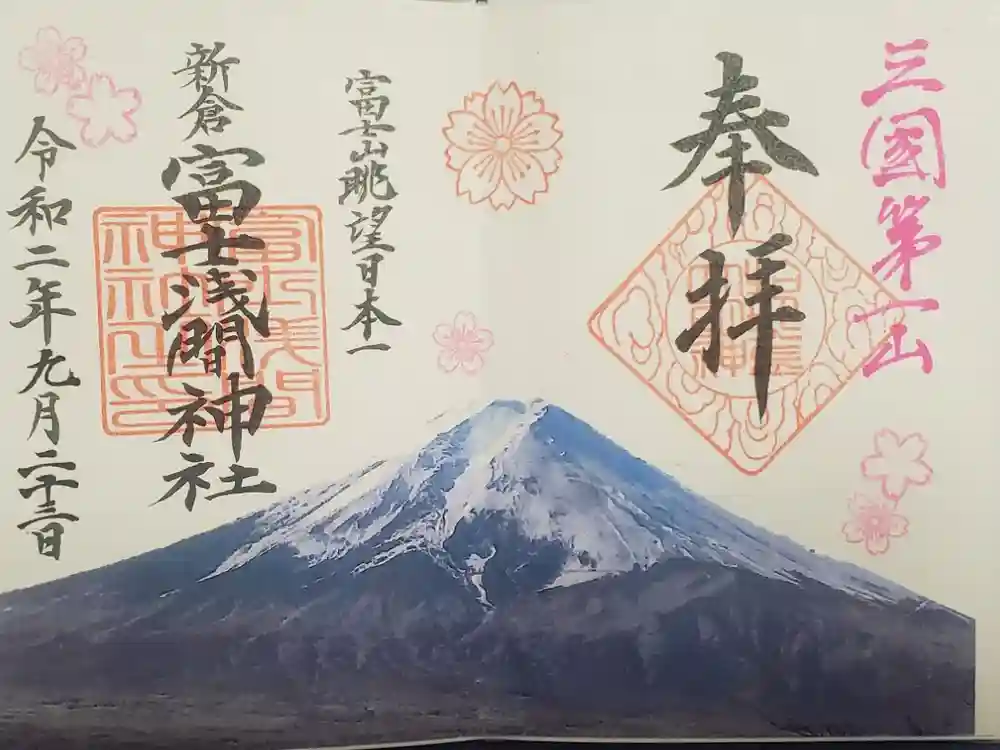 三國第一山
奉拝
富士山眺望日本一
新倉
富士浅間神社
令和二年九月二十三日